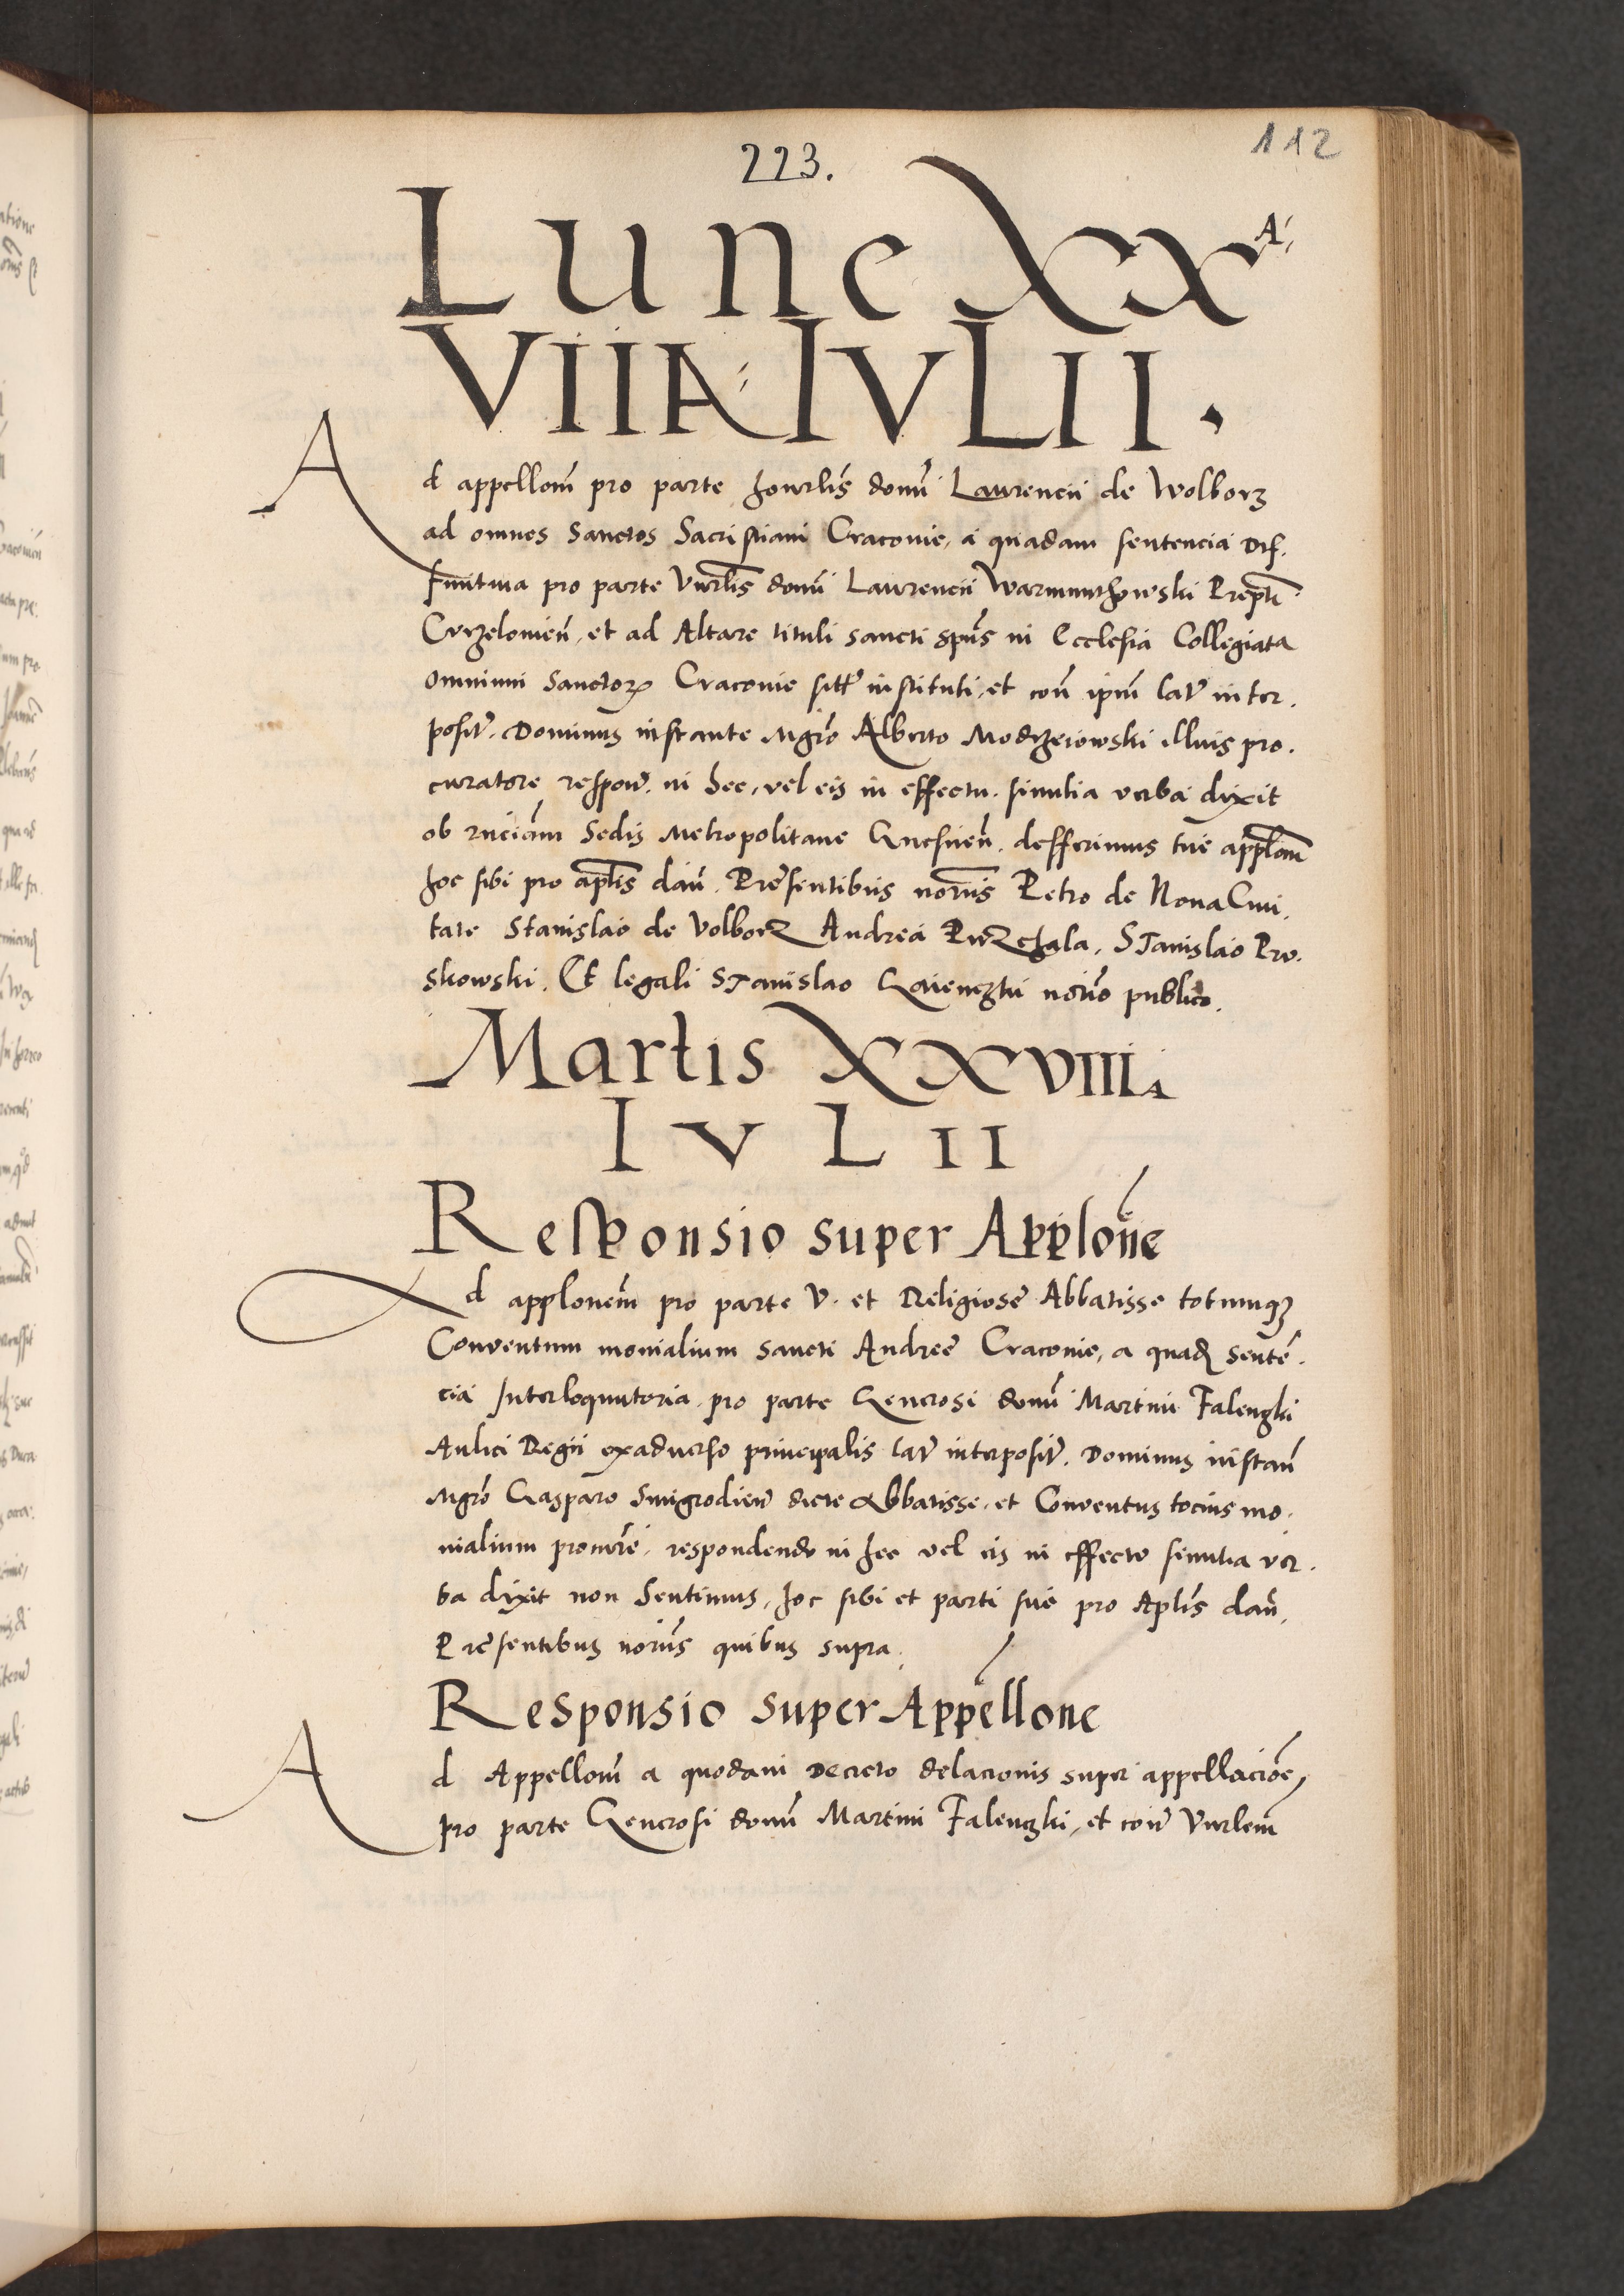 112
223.
Lune XXA
VIIA IVLII.
Ad appellom̄ pro parte honorlis domi Laurencii de Wolborz
ad omnes Sanctos Sacristiani Cracovie, a quadam sentencia Dif.
finitiva pro parte Vnrlis domi Laurencii Warmunthowski Prepti
Curzelovien̄, et ad Altare tituli sancti sp̄us in Ecclesia Collegiata
omnium Sanctorꝝ Cracovie sitū instituti, et con̄ ip̄m lat̄ inter.
posit̄. Dominus instante Mgrō Alberto Modrzeiowski illius pro.
curatore respon̄. in hec, vel eis in effectu. similia verba dixit
ob rnciām Sedis Metropolitane Gnesnen̄. defferimus tue applōni
hoc sibi pro aptlis dan̄. Presentibus noriis Petro de Nova Civi.
tate Stanislao de Volborz Andrea Purzchala, STanislao Pro.
skowski. Et legali STanislao Gaienczki noriō publico.
Martis XXVIIIA
IVLII
Responsio super Applōne
Ad applonem̄ pro parte V. et Religiose Abbatisse totumqꝫ
Conventum monialium sancti Andree Cracovie, a quadꝫ senten̄.
cia Interloquutoria pro parte Generosi domi Martini Falenczki
Aulici Regii exadverso principalis lat̄ interposit̄. Dominus instan̄
Mgrō Gasparo Smigrodien̄ dicte Abbatisse, et Conventus tocius mo.
nialium procurē. respondendo in hec vel eis in effectu similia ver.
ba dixit non Sentimus, hoc sibi et parti sue pro Aplis dan̄.
Presentibus noriis quibus supra.
Responsio super Appellone
Ad Appellom̄ a quodam Decreto delacionis super appellacione,
pro parte Generosi domi Martini Falenczki, et con̄ Vnrlem